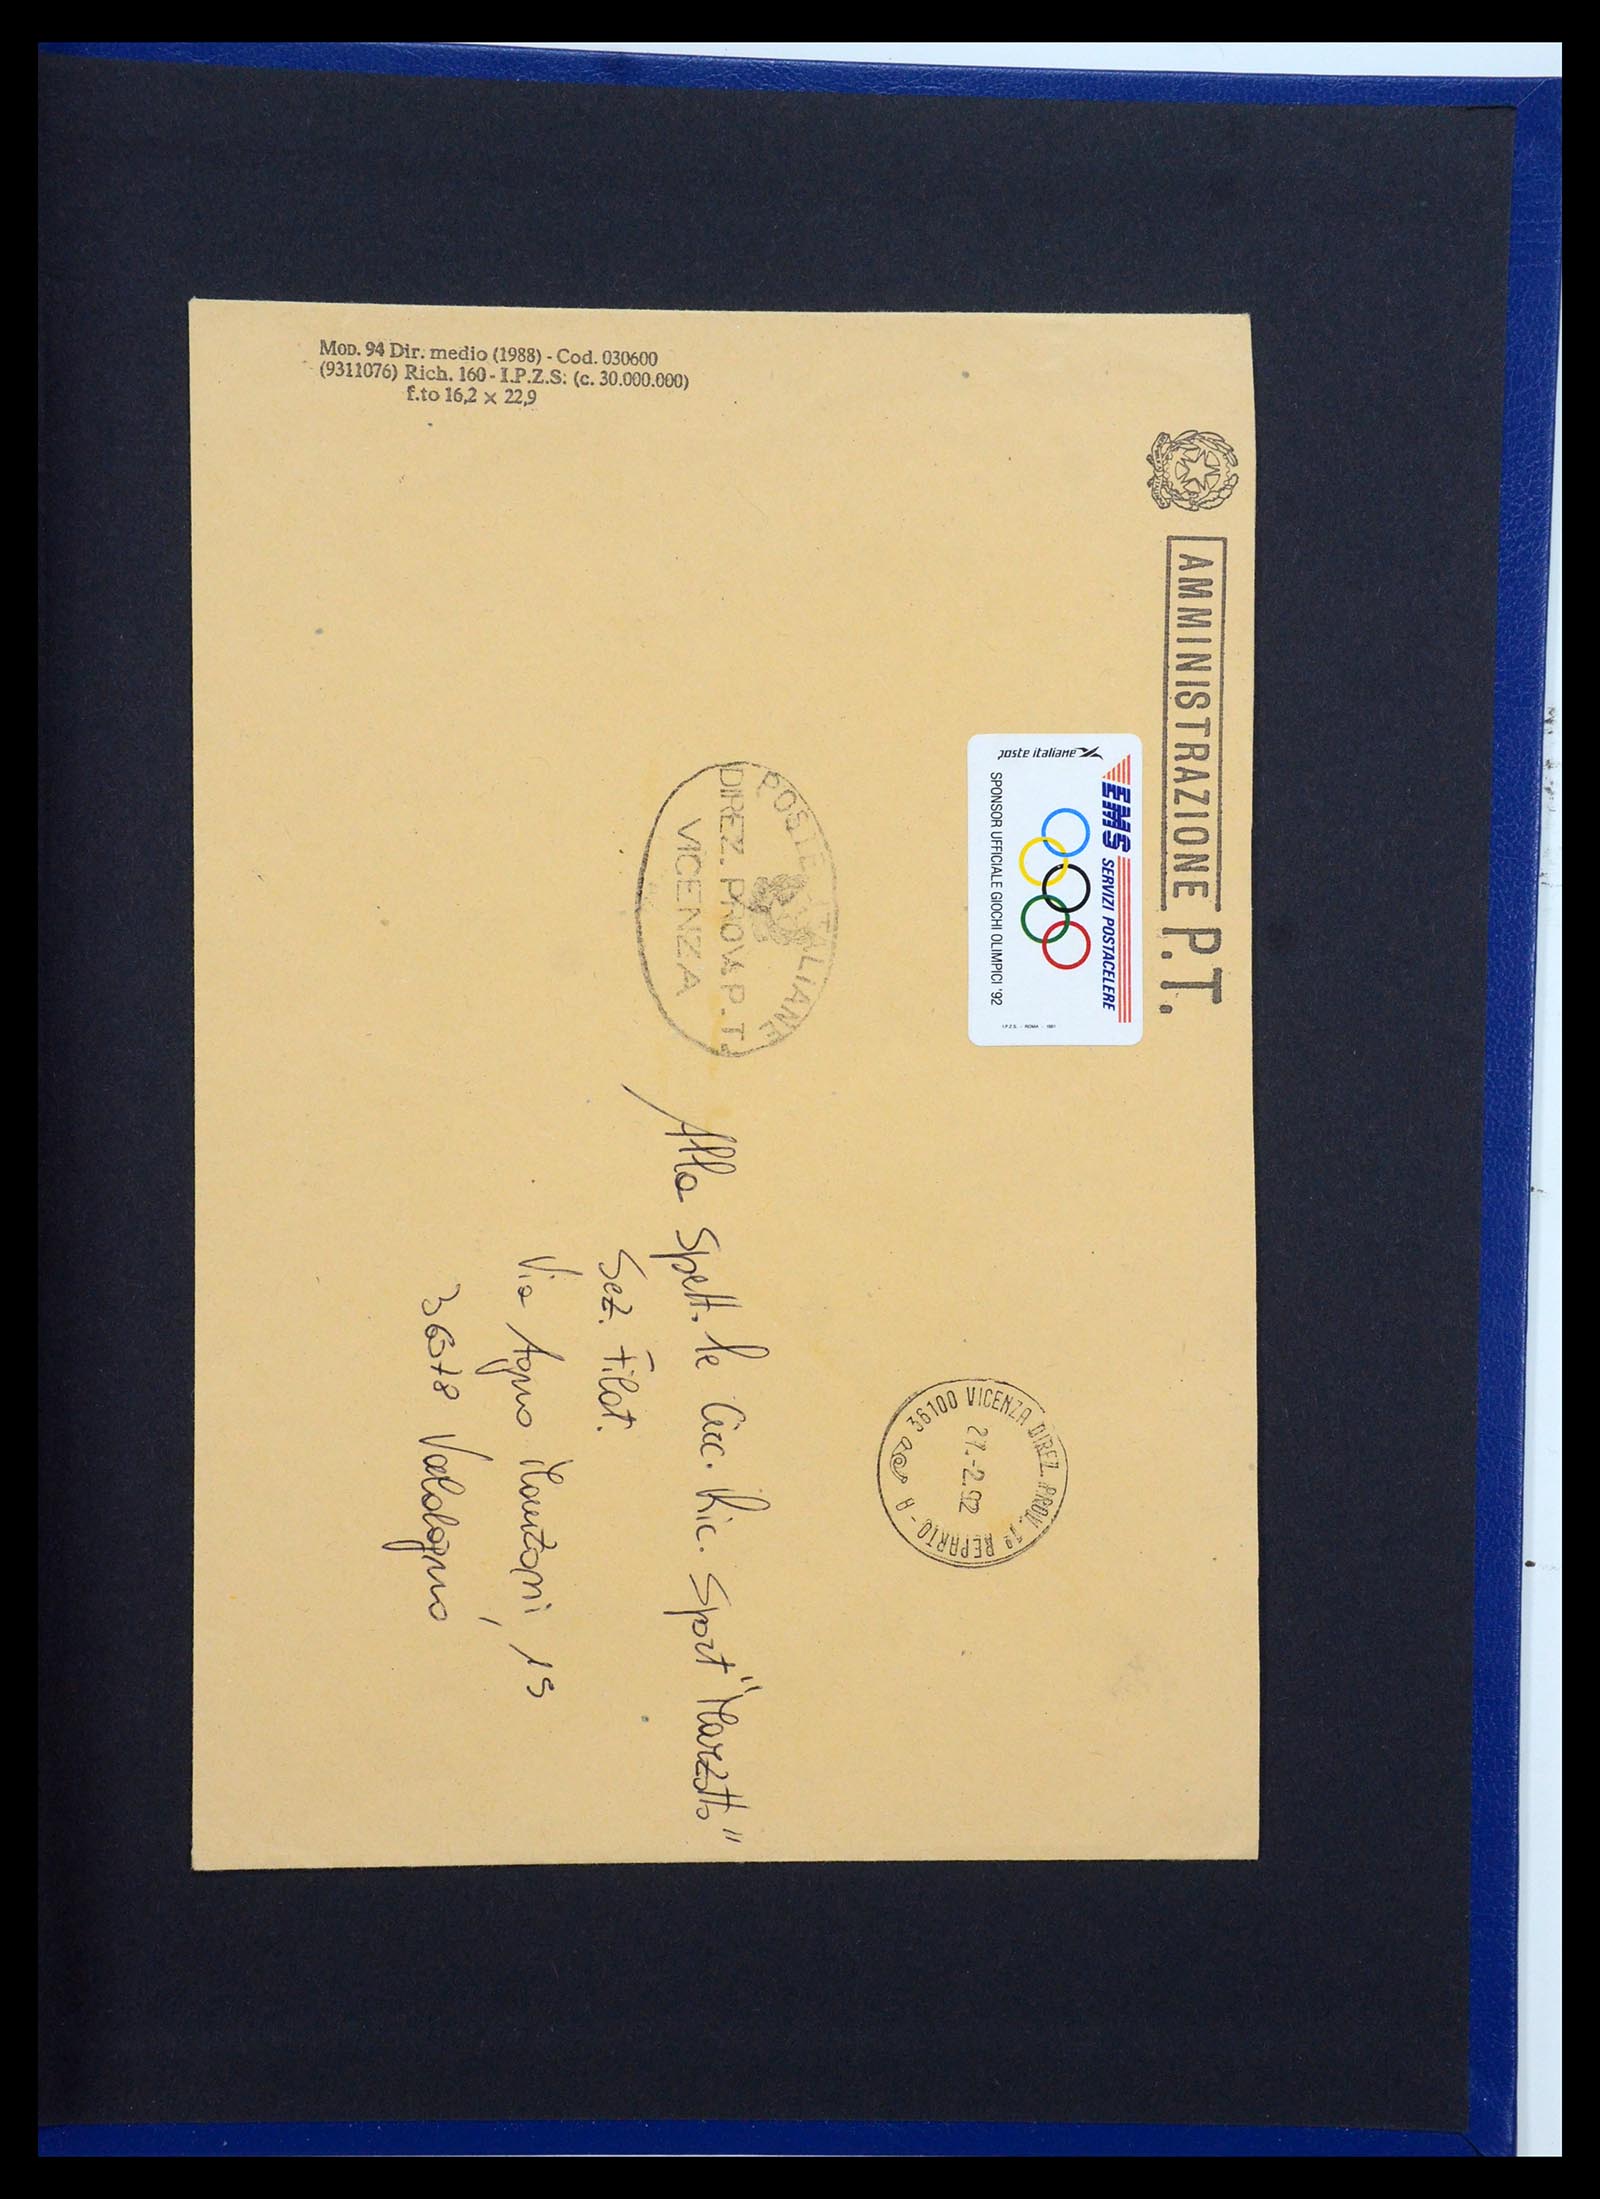 Mod. 94 Dir. medio (1988) - Cod. 030600
(9311076) Rich. 160 - I.P.Z.S. (c. 30.000.000)
f.to 16,2 × 22,9
AMMINISTRAZIONE P.T.
EMS SERVIZI POSTACELERE
poste italiane
SPONSOR UFFICIALE GIOCHI OLIMPICI '92
I.P.Z.S. - ROMA - 1991
POSTE ITALIANE
DIREZ. PROV. P.T.
VICENZA
36100 VICENZA DIREZ. PROV. 1º REPARTO - A
27.-2.92
Alla Spett.le Circ. Ric. Sport "Marzotto"
Sez. Filat.
Via Agno Manzoni, 15
36078 Valdagno